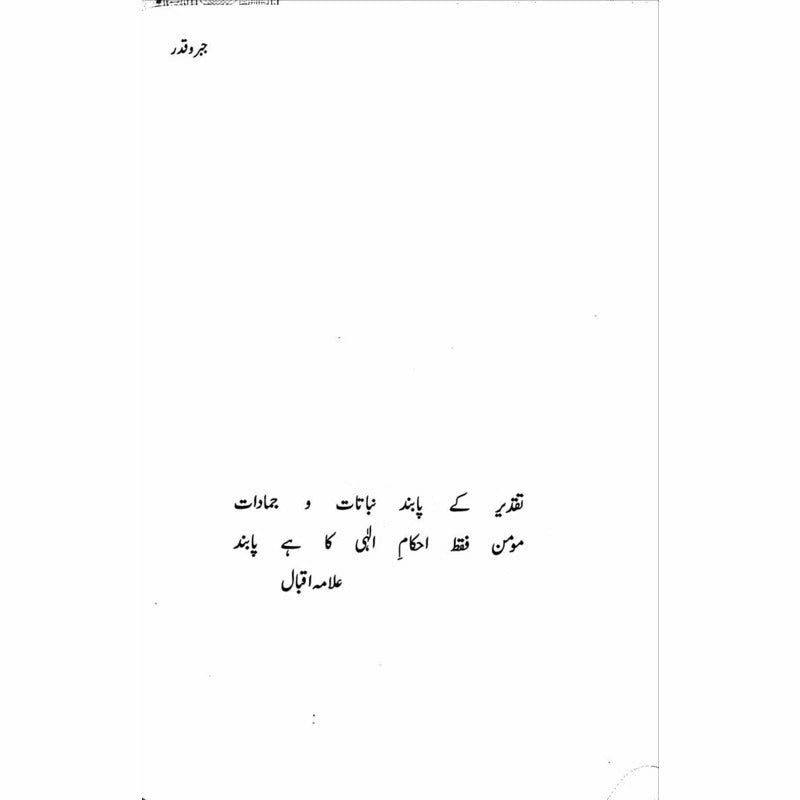 جبر و قدر
تقدیر کے پابند نباتات و جمادات
مومن فقط احکامِ الٰہی کا ہے پابند
علامہ اقبال